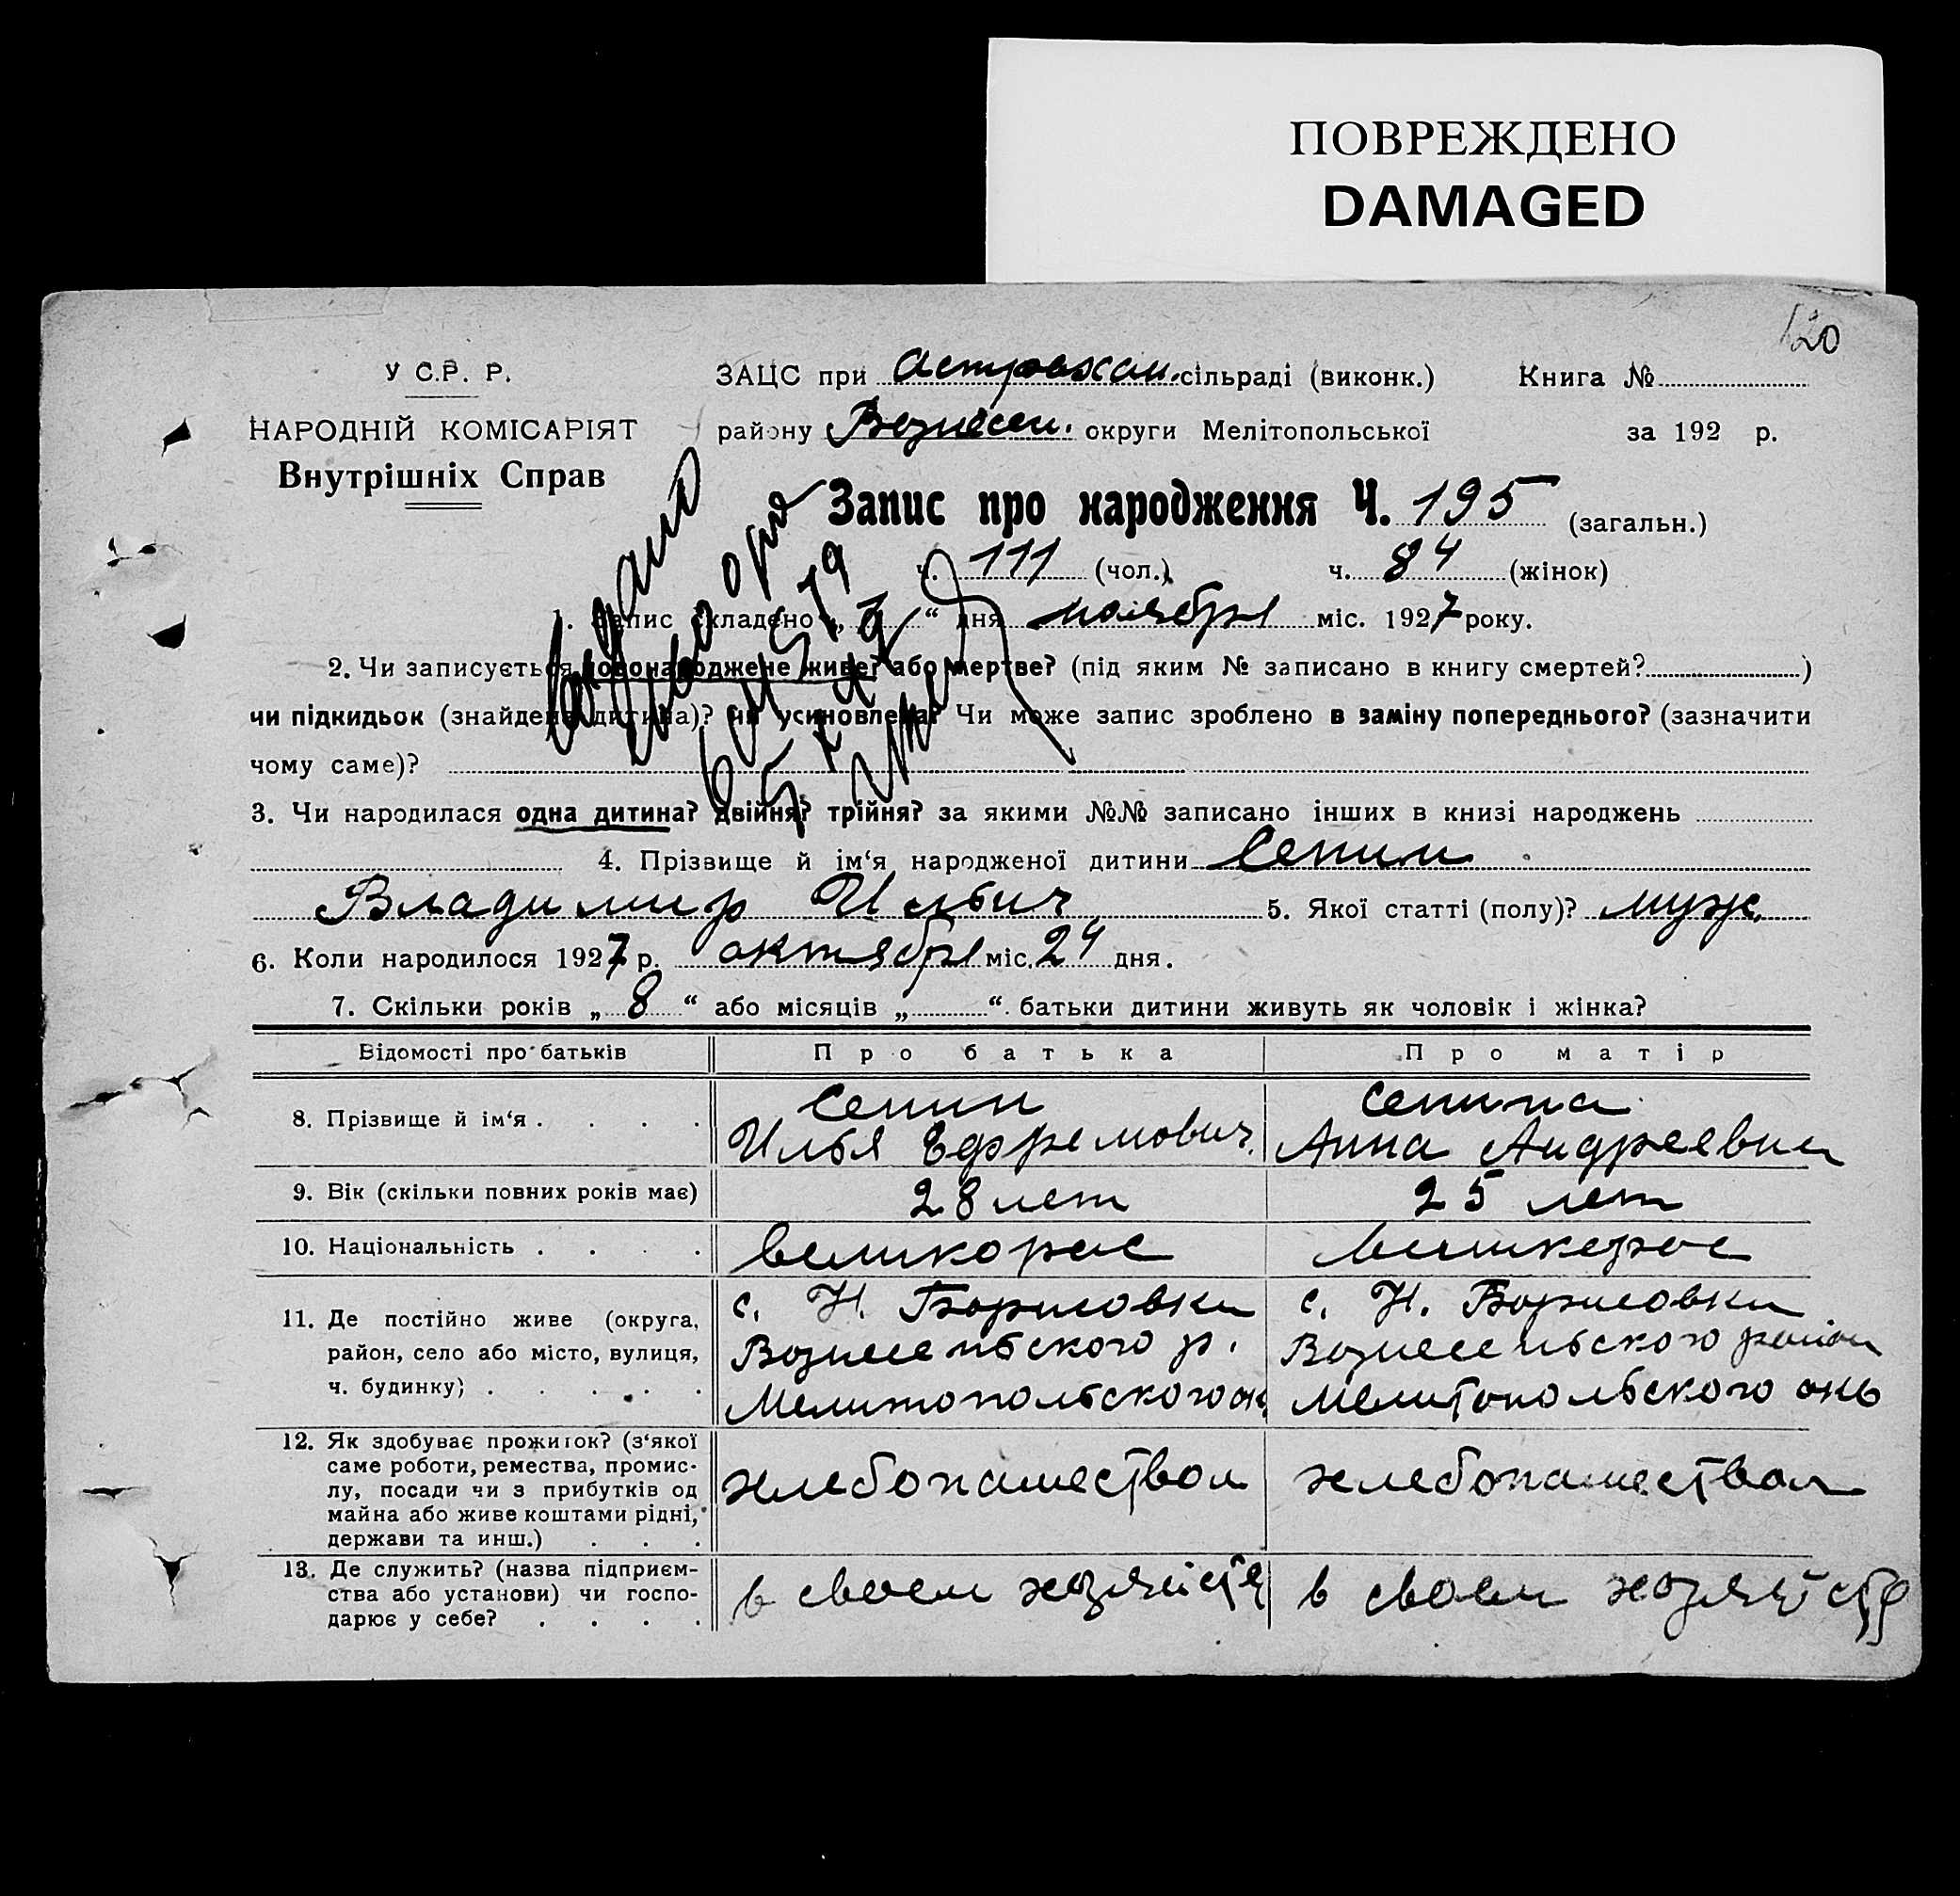 ПОВРЕЖДЕНО
DAMAGED
120
У С.Р. Р.
НАРОДНІЙ КОМІСАРІЯТ
Внутрішніх Справ
ЗАЦС при Астрахан. сільраді (виконк.) Книга №
району Вознесен. округи Мелітопольської за 192 р.
Запис про народження Ч. 195 (загальн.)
ч. 111 (чол.) ч. 84 (жінок)
1. Запис складено „ 1 “ дня ноября міс. 1927 року.
2. Чи записується новонароджене живе? або мертве? (під яким № записано в книгу смертей? )
чи підкидьок (знайдена дитина)? чи усиновлена? Чи може запис зроблено в заміну попереднього? (зазначити
чому саме)?
3. Чи народилася одна дитина? двійня? трійня? за якими №№ записано інших в книзі народжень
4. Прізвище й ім‘я народженої дитини Сенин
Владимир Ильич 5. Якої статті (полу)? муж.
6. Коли народилося 1927 р. октября міс. 24 дня.
7. Скільки років „ 8 “ або місяців „ “ батьки дитини живуть як чоловік і жінка?
Відомості про батьків Про батька Про матір
8. Прізвище й ім‘я . Сенин Сенина
Илья Ефремович. Анна Андреевна
9. Вік (скільки повних років має) 28 лет 25 лет
10. Національність . великорос великорос
11. Де постійно живе (округа, с. Н. Борисовки с. Н. Борисовки
район, село або місто, вулиця, Вознесенського р. Вознесенського район
ч. будинку) . Мелитопольского ок. Мелитопольского окр
12. Як здобуває прожиток? (з‘якої
саме роботи, ремества, промис-
лу, посади чи з прибутків од хлебопашеством хлебопашеством
майна або живе коштами рідні,
держави та инш.)
13. Де служить? (назва підприєм-
ства або установи) чи госпо- в своем хозяйстве в своем хозяйстве
дарює у себе? .